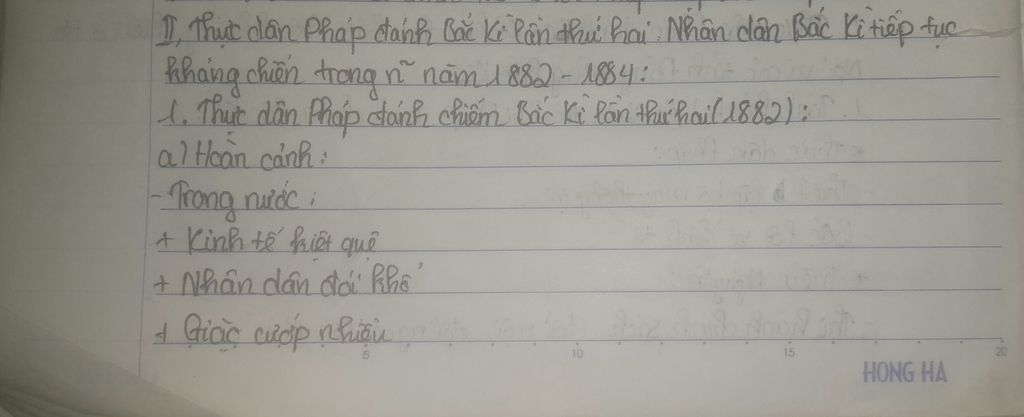 II, Thực dân Pháp đánh Bắc Kì lần thứ hai. Nhân dân Bắc Kì tiếp tục
kháng chiến trong n~ năm 1882 - 1884:
1. Thực dân Pháp đánh chiếm Bắc Kì lần thứ hai (1882):
a) Hoàn cảnh:
- Trong nước:
+ Kinh tế kiệt quệ
+ Nhân dân đói khổ
+ Giặc cướp nhiều
5 10 15 20
HONG HA